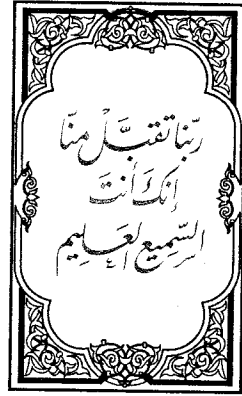 ربّنا تقبّل منّا
إنكَ أنتَ
السّميع العليم